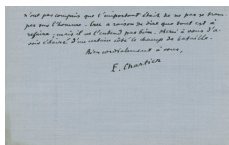 n'ont pas compris que l'important était de ne pas se tromper
pas sur l'homme. a raison de dire que tout est à
refaire ; mais il ne l'entend pas bien. Merci à vous d'a-
voir éclairé d'un certain côté le champ de bataille.
Bien cordialement à vous,
E. Chartier